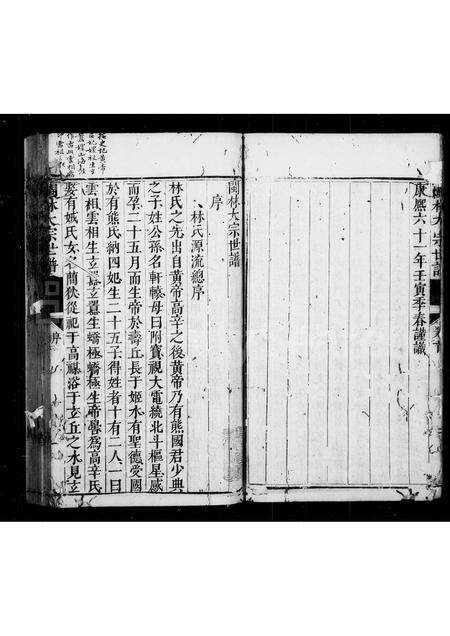 康熙六十一年壬寅季春謹識
閩林大宗世譜
序
林氏源流總序
林氏之先出自黃帝高辛之後黃帝乃有熊國君少典
之子姓公孫名軒轅母曰附寶視大電繞北斗樞星感
而孕二十五月而生帝於壽丘長于姬水有聖德愛國
於有熊氏納四妃生二十五子得姓者十有二人一曰
雲祖雲相生玄囂玄囂生蟜極蟜極生帝嚳為高辛氏
娶有娀氏女簡狄從祀于高禖浴于玄丘之水見玄
閩林大宗世譜
序